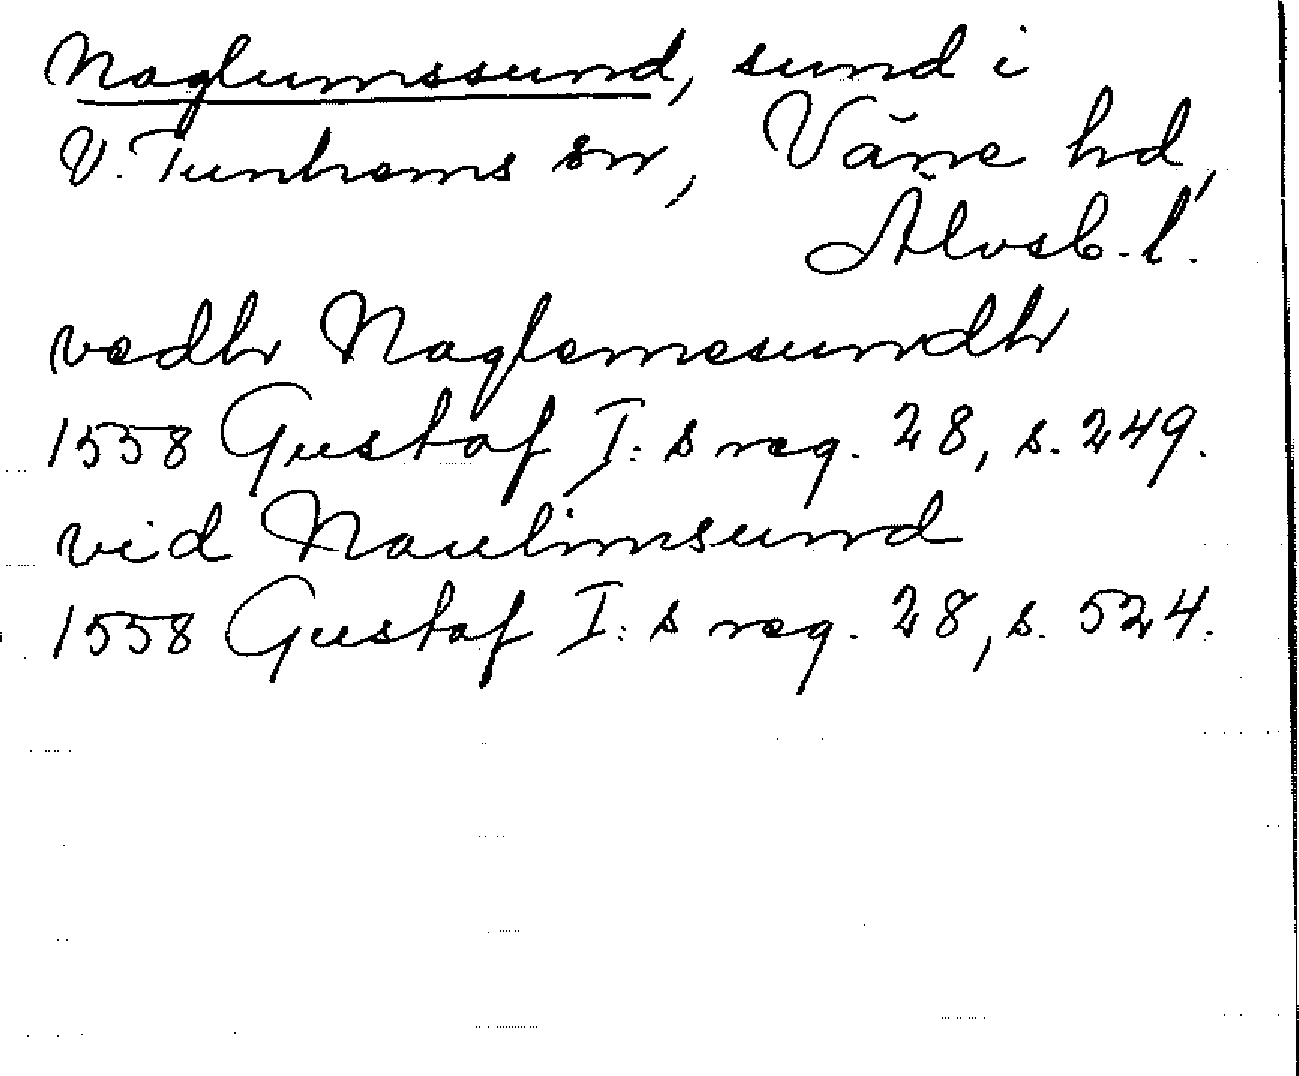 Naglumssund, sund i
V. Tunhems sn, Väne hd,
Älvsb. l.
vedh Naglemesundh
1558 Gustaf I:s reg. 28, s. 249.
vid Naulimsund
1558 Gustaf I:s reg. 28, s. 524.